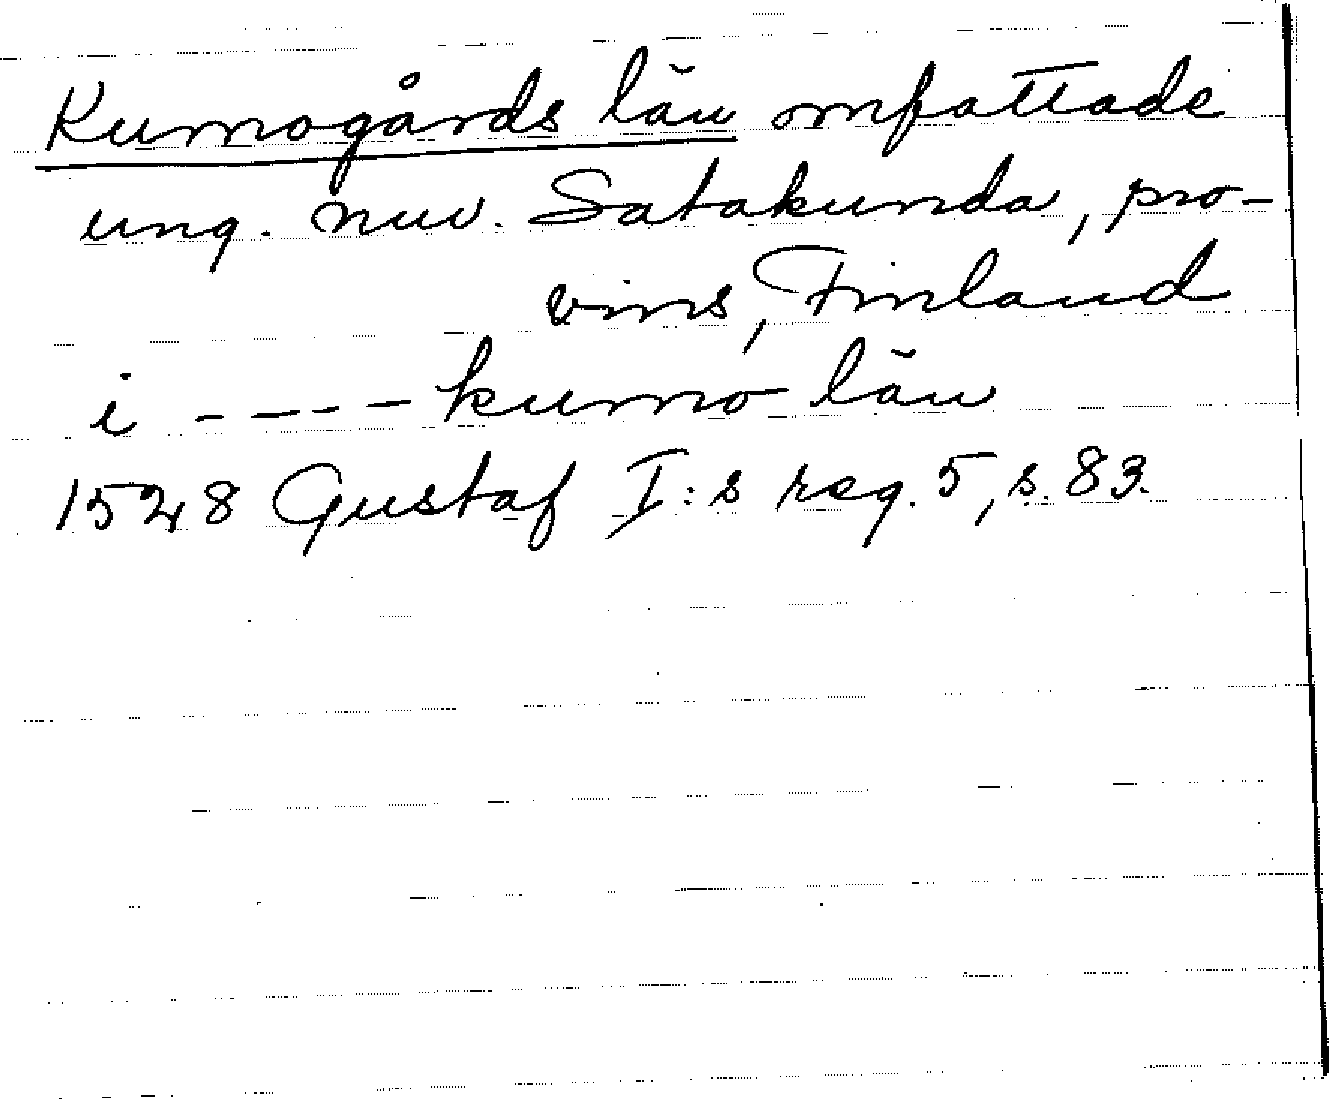 Kumogårds län omfattade
ung. nuv. Satakunda, pro-
vins, Finland
i - - - - kumo län
1528 Gustaf I:s reg. 5, s. 83.